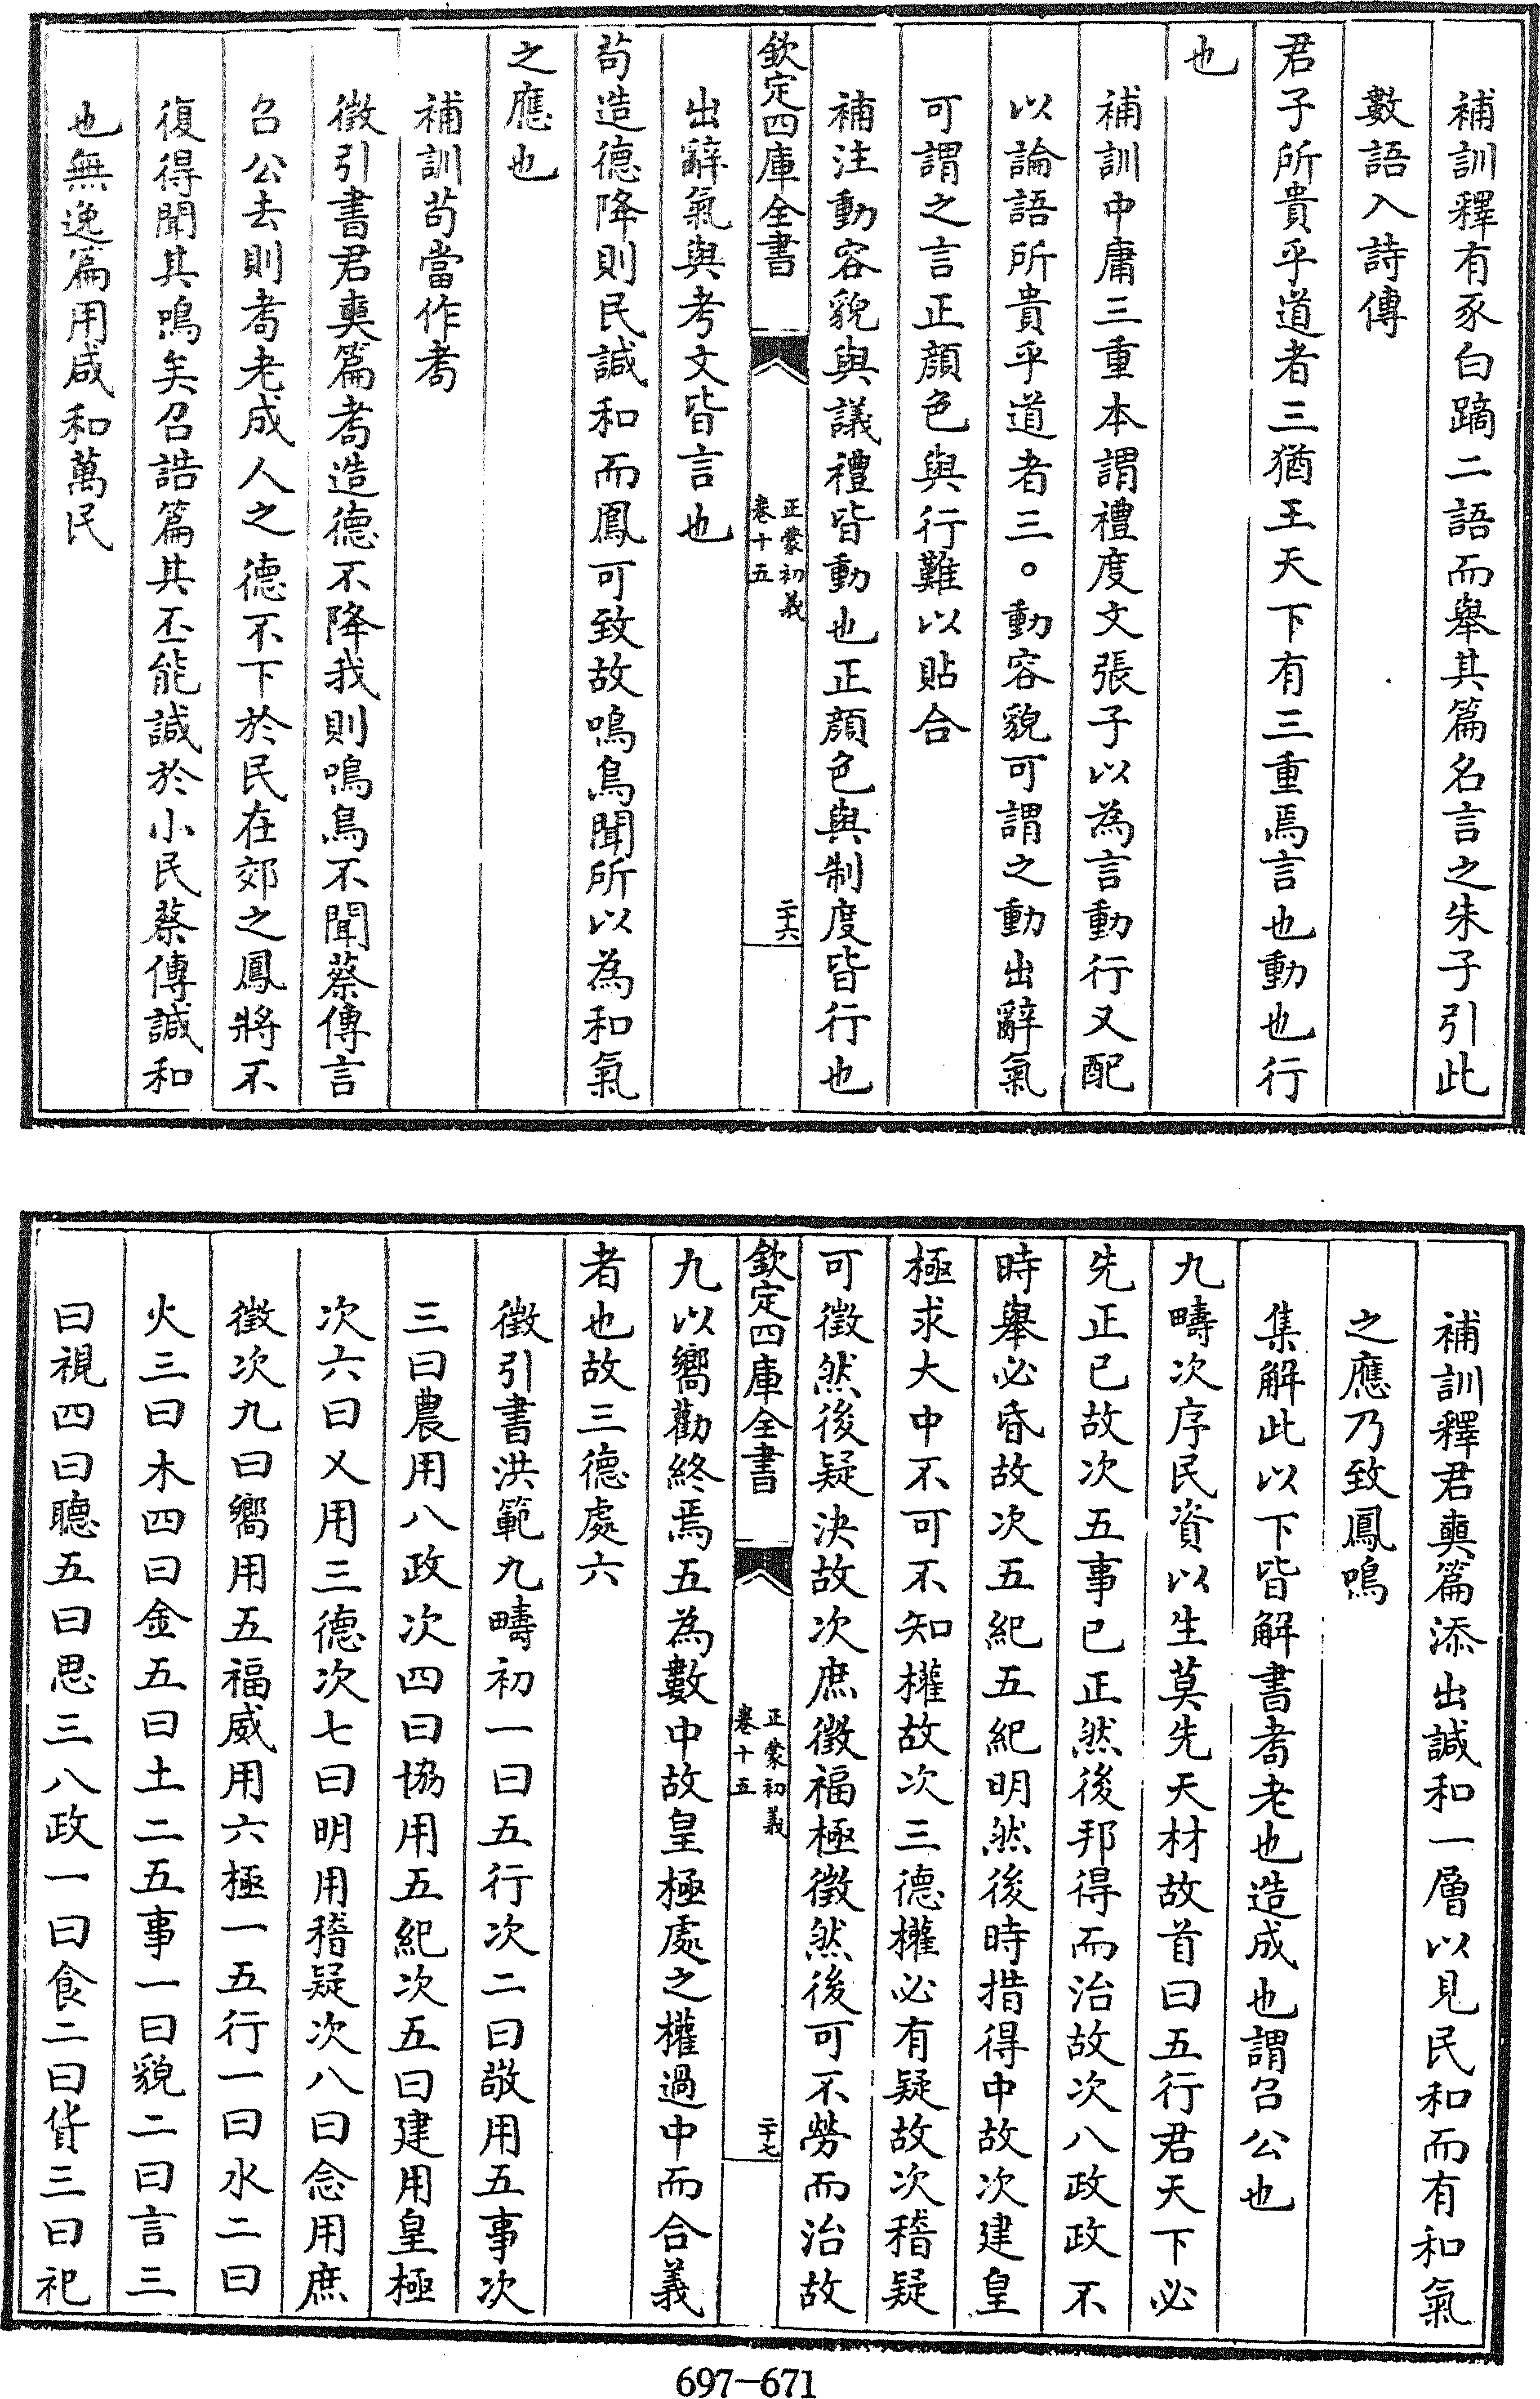 補訓釋有豕白蹢二語而舉其篇名言之朱子引此
數語入詩傳
君子所貴乎道者三猶王天下有三重焉言也動也行
也
補訓中庸三重本謂禮度文張子以為言動行又配
以論語所貴乎道者三。動容貌可謂之動出辭氣
可謂之言正顔色與行難以貼合
補注動容貌與議禮皆動也正顔色與制度皆行也
欽定四庫全書
正蒙初義
卷十五
二十六
出辭氣與考文皆言也
茍造德降則民諴和而鳳可致故鳴鳥聞所以為和氣
之應也
補訓茍當作耇
徵引書君奭篇耇造德不降我則鳴鳥不聞蔡傳言
召公去則耇老成人之德不下於民在郊之鳳將不
復得聞其鳴矣召誥篇其丕能諴於小民蔡傳諴和
也無逸篇用咸和萬民
補訓釋君奭篇添出諴和一層以見民和而有和氣
之應乃致鳳鳴
集解此以下皆解書耇老也造成也謂召公也
九疇次序民資以生莫先天材故首曰五行君天下必
先正已故次五事已正然後邦得而治故次八政政不
時舉必昏故次五紀五紀明然後時措得中故次建皇
極求大中不可不知權故次三德權必有疑故次稽疑
可徵然後疑決故次庶徵福極徵然後可不勞而治故
欽定四庫全書
正蒙初義
卷十五
二十七
九以嚮勸終焉五為數中故皇極處之權過中而合義
者也故三德處六
徵引書洪範九疇初一曰五行次二曰敬用五事次
三曰農用八政次四曰協用五紀次五曰建用皇極
次六曰乂用三德次七曰明用稽疑次八曰念用庶
徵次九曰嚮用五福威用六極一五行一曰水二曰
火三曰木四曰金五曰土二五事一曰貌二曰言三
曰視四曰聽五曰思三八政一曰食二曰貨三曰祀
697-671